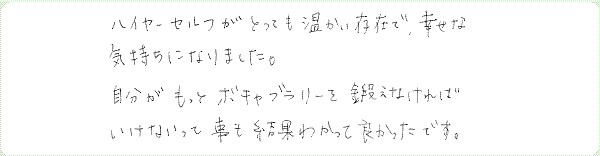 ハイヤーセルフがとっても温かい存在で、幸せな
気持ちになりました。
自分がもっとボキャブラリーを鍛えなければ
いけないって事も結果わかって良かったです。